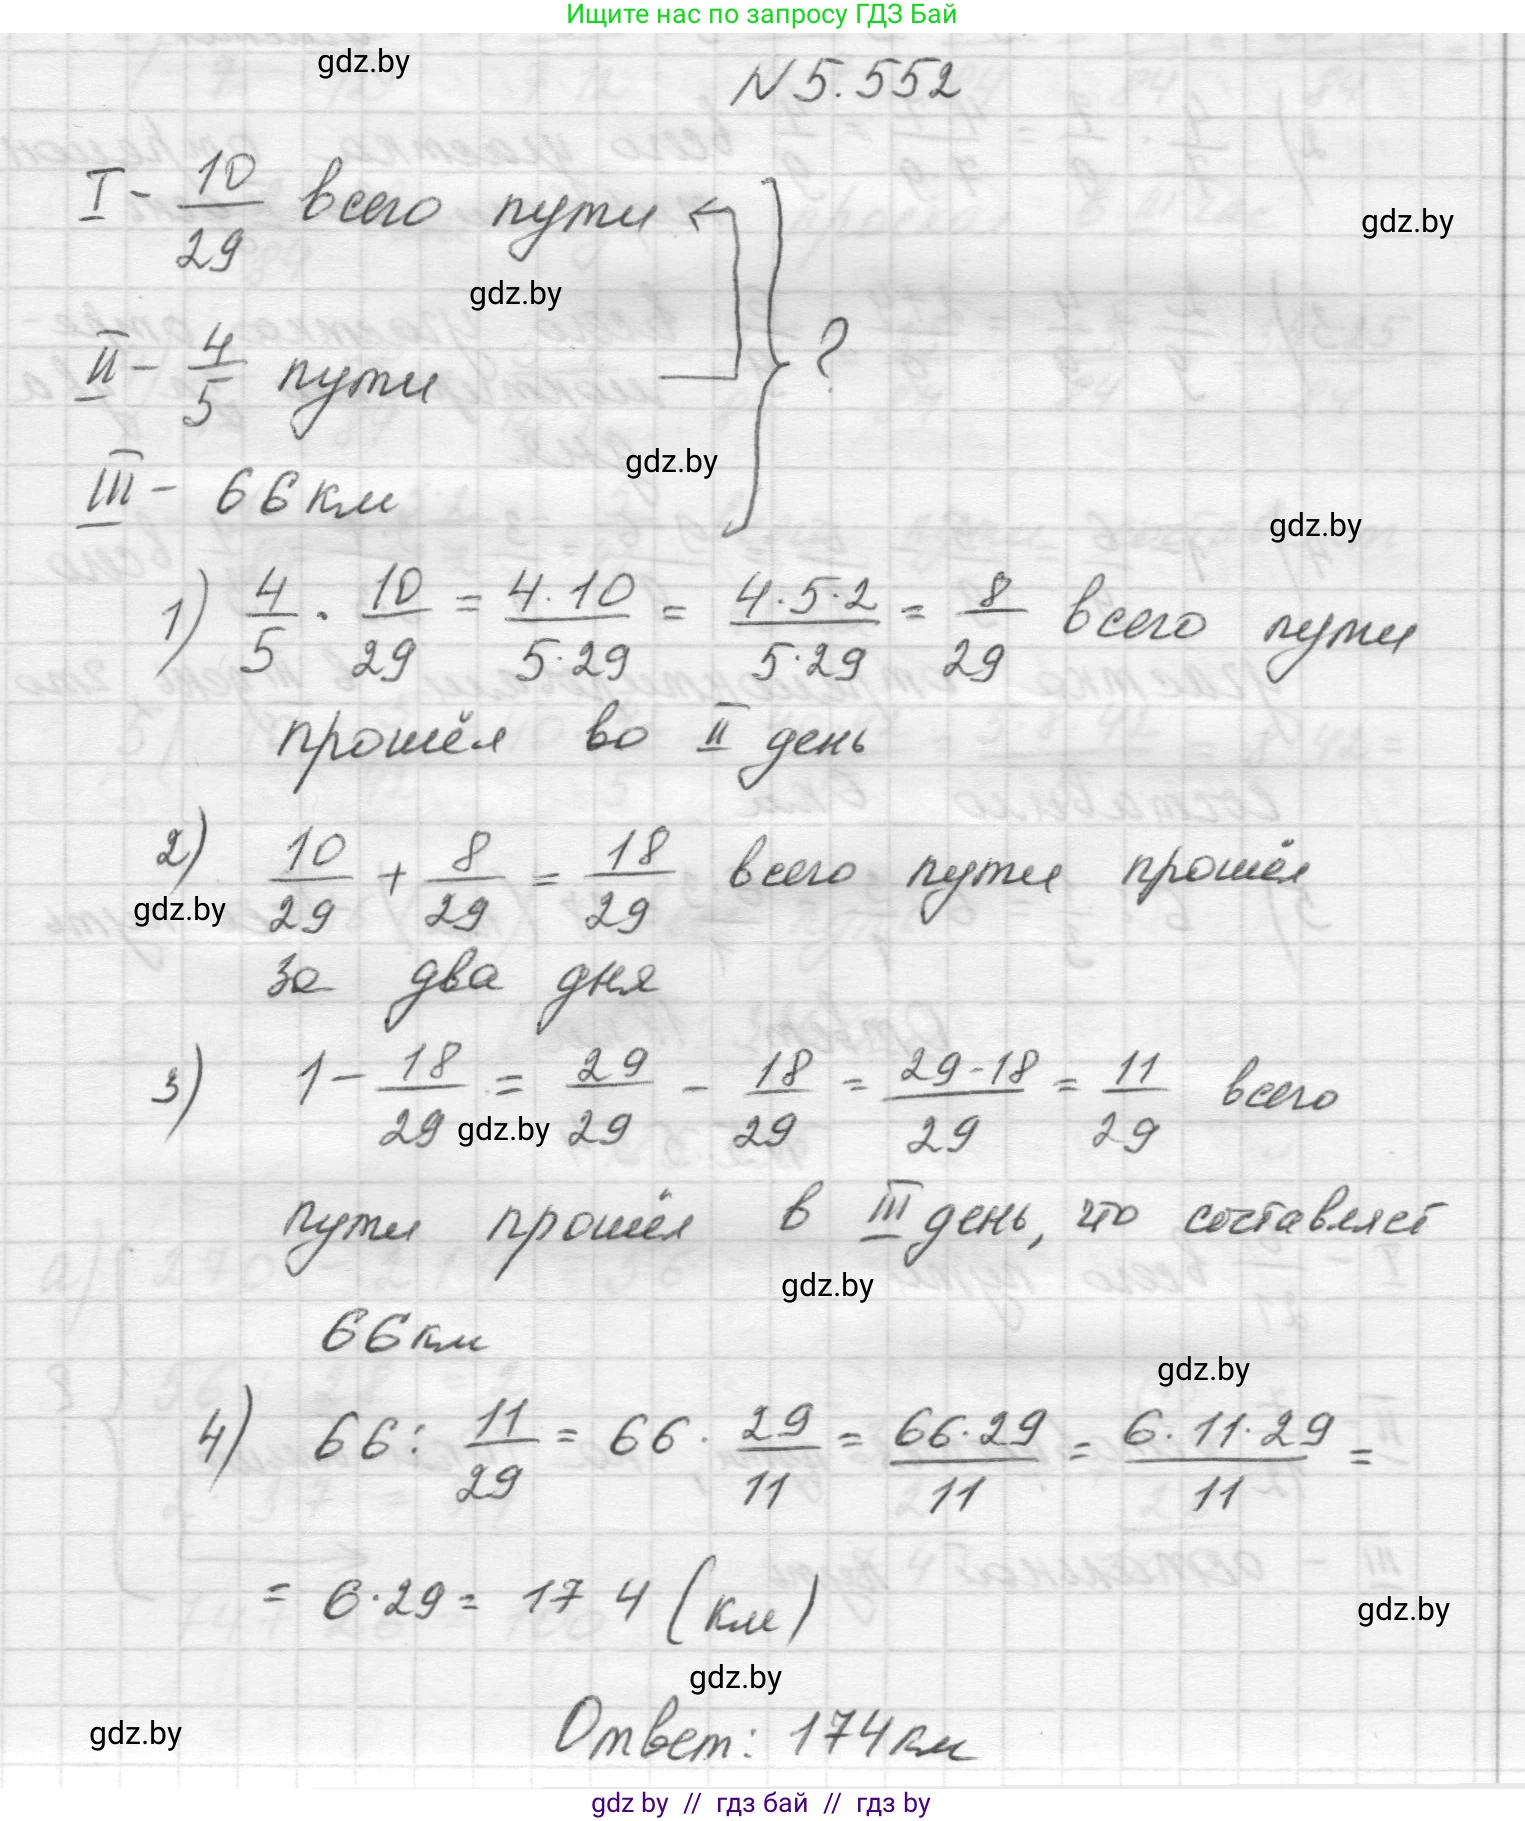 Ищите нас по запросу ГДЗ Бай
gdz.by
N 5.552
I - 10/29 всего пути
gdz.by
gdz.by
II - 4/5 пути
?
gdz.by
III - 66 км
gdz.by
1) 4/5 · 10/29 = 4·10/5·29 = 4·5·2/5·29 = 8/29 всего пути
прошёл во II день
2) 10/29 + 8/29 = 18/29 всего пути прошёл
gdz.by
за два дня
3) 1 - 18/29 = 29/29 - 18/29 = 29-18/29 = 11/29 всего
gdz.by
пути прошёл в III день, что составляет
gdz.by
66 км
gdz.by
4) 66 : 11/29 = 66 · 29/11 = 66·29/11 = 6·11·29/11 =
= 6·29 = 174 (км)
gdz.by
gdz.by
Ответ: 174 км
gdz.by
gdz by // гдз бай // гдз by